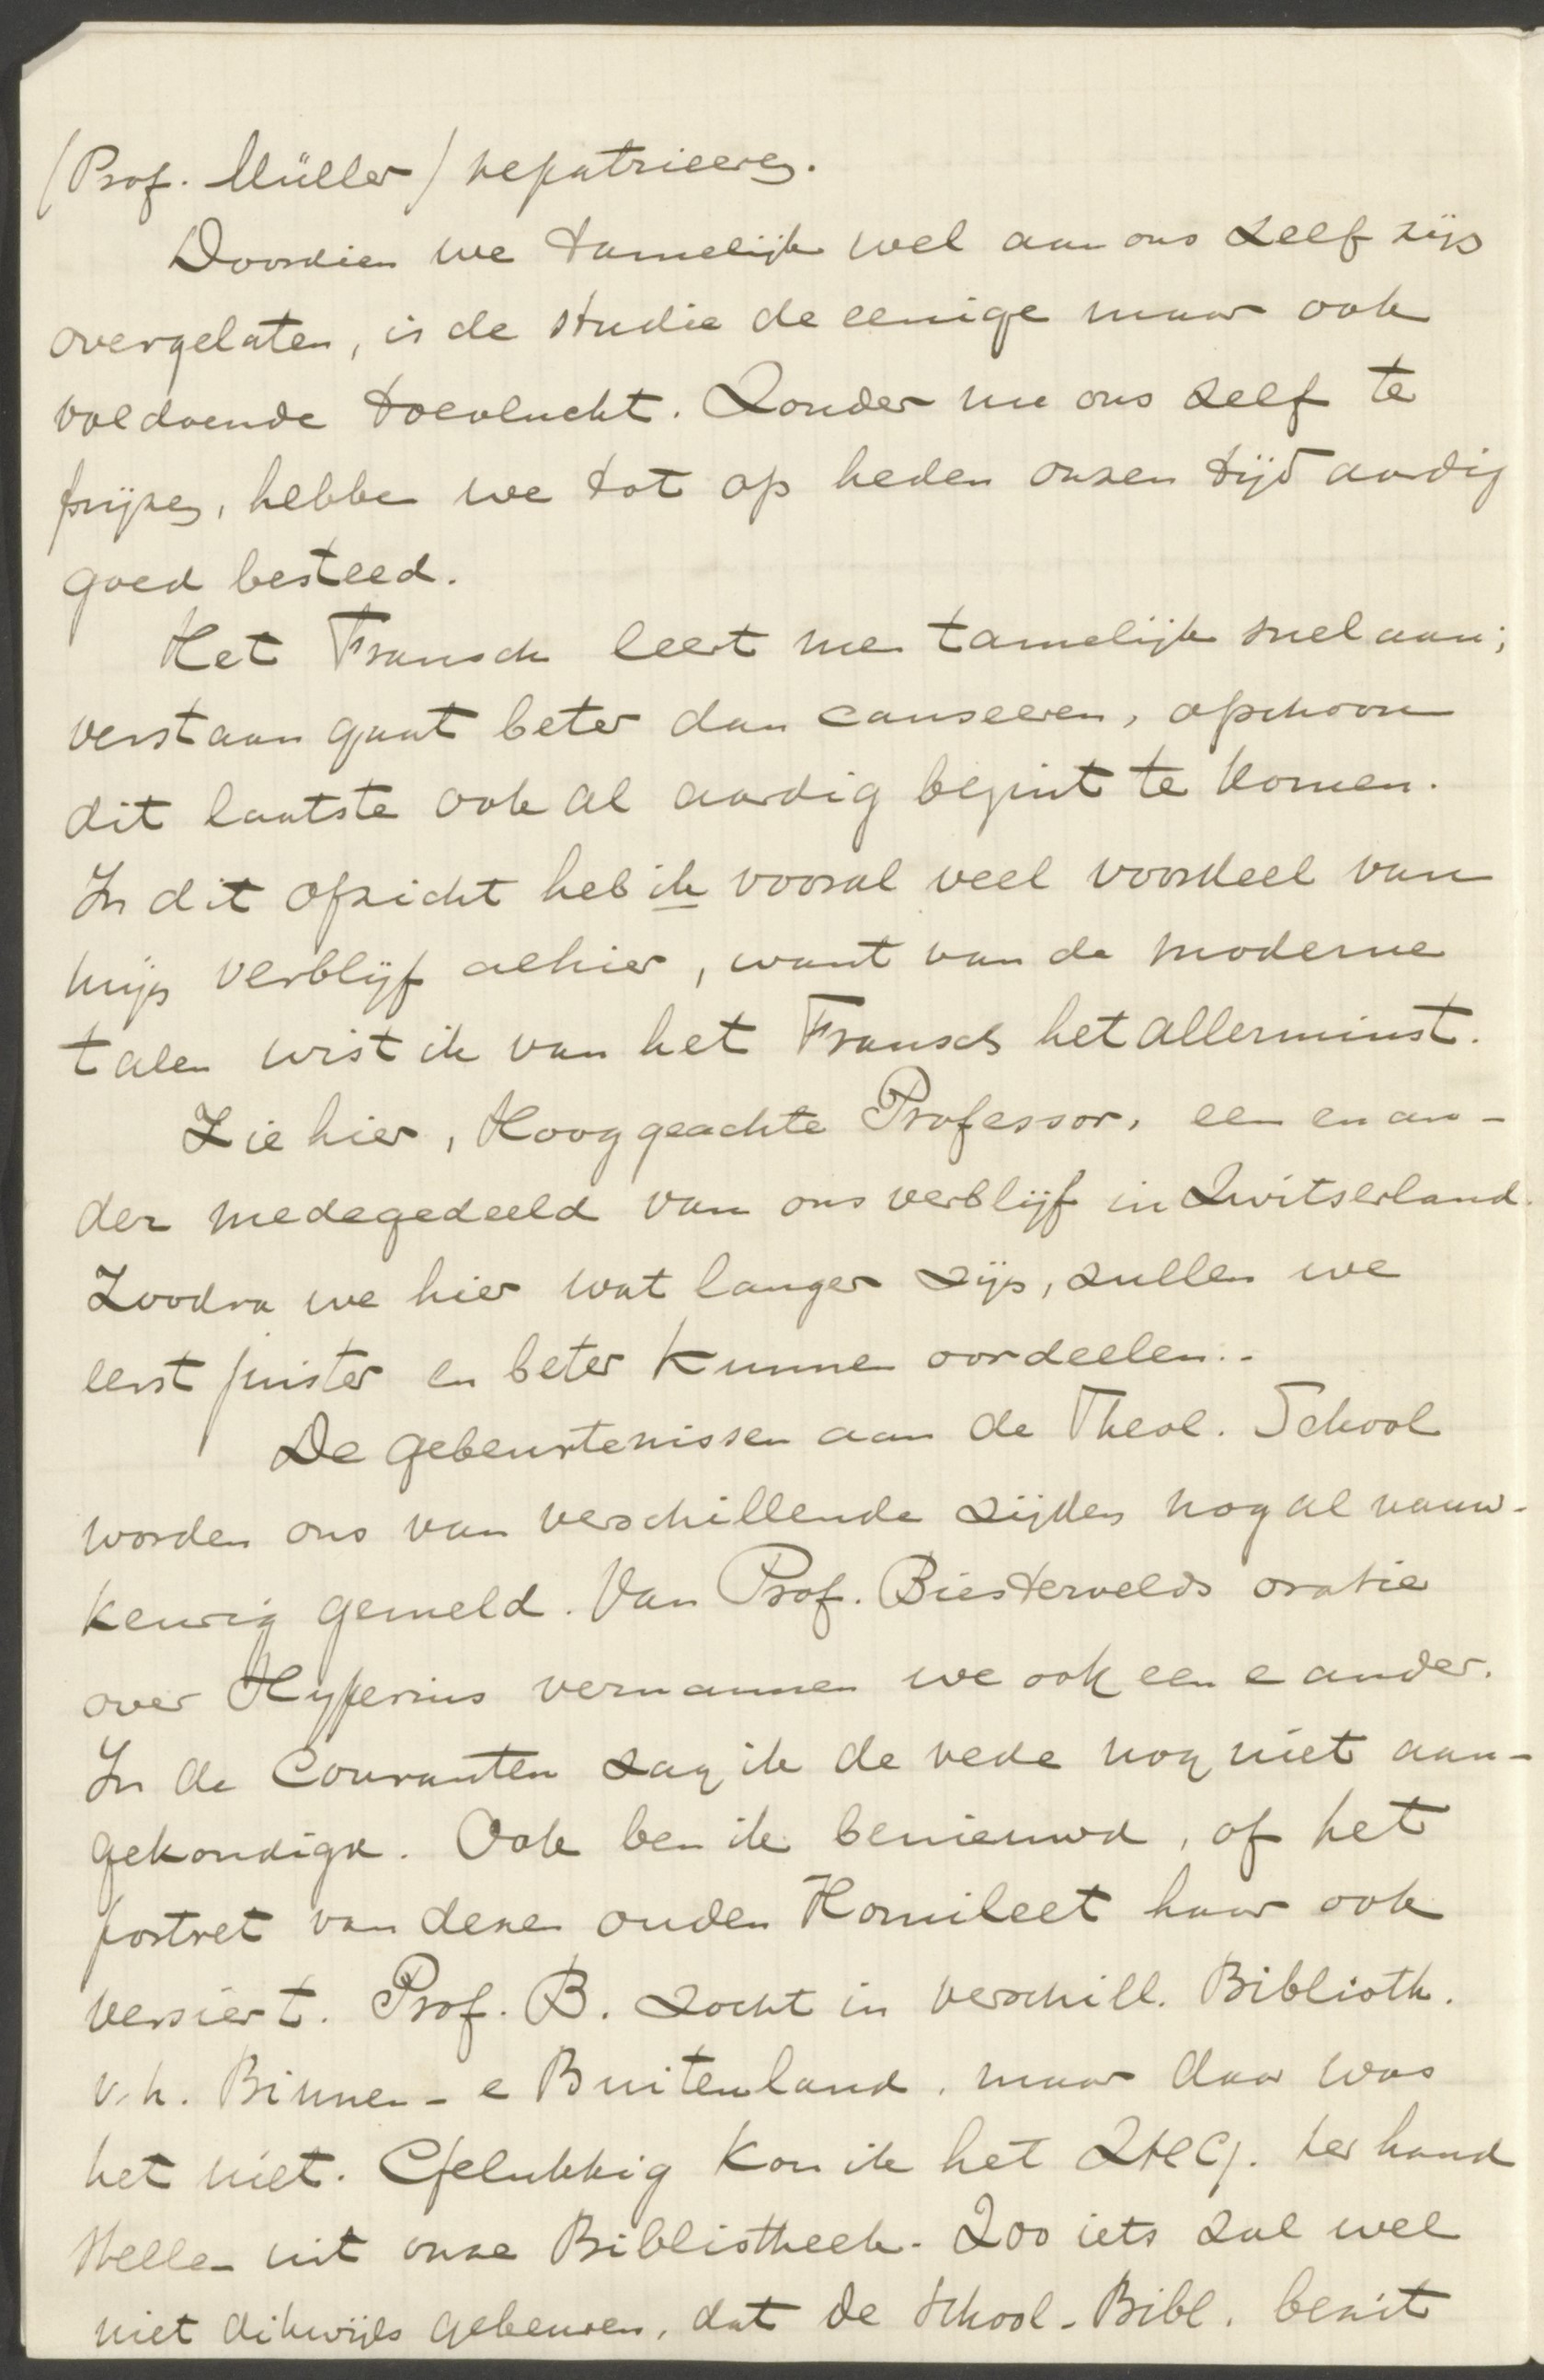 (Prof. Müller) repatrieeren.
Doordien we tamelijk wel aan ons zelf zijn
overgelaten, is de studie de eenige maar ook
voldoende toevlucht. Zonder nu ons zelf te
prijzen, hebben we tot op heden onzen tijd aardig
goed besteed.
Het Fransch leert men tamelijk snel aan;
verstaan gaat beter dan causeeren, ofschoon
dit laatste ook al aardig begint te komen.
In dit opzicht heb ik vooral veel voordeel van
mijn verblijf alhier, want van de moderne
talen wist ik van het Fransch het allerminst.
Zie hier, Hooggeachte Professor, een en an-
der medegedeeld van ons verblijf in Zwitserland.
Zoodra we hier wat langer zijn, zullen we
eerst juister en beter kunnen oordeelen..-
De gebeurtenissen aan de Theol. School
worden ons van verschillende zijden nog al nauw-
keurig gemeld. Van Prof. Biestervelds oratie
over Hyperius vernamen we ook een e ander.
In de Couranten zag ik de rede nog niet aan-
gekondigd. Ook ben ik benieuwd, of het
portret van dezen ouden Homileet haar ook
versiert. Prof. B. zocht in verschill. Biblioth.
v. h. Binnen- e Buitenland, maar daar was
het niet. Gelukkig kon ik het ZHG. ter hand
stellen uit onze Bibliotheek. Zoo iets zal wel
niet dikwijls gebeuren, dat de School-Bibl. bezit